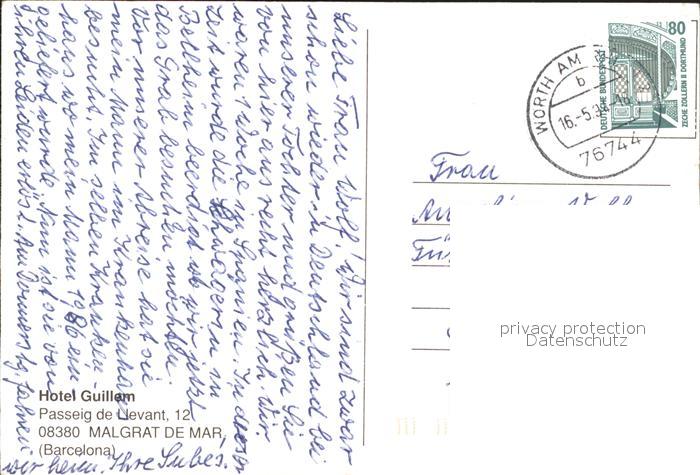 Liebe Frau Wolf! Wir sind zwar
schon wieder in Deutschland bei
unserer Tochter und grüßen Sie
von hier aus recht herzlich. Wir
waren 1 Woche in Spanien. In dieser
Zeit wurde die Schwägerin in
Bellheim beerdigt wo wir jetzt
das Grab besuchen möchten.
Vor unserer Abreise hat sie
mein Mann im Krankenhaus
besucht. Im selben Kranken-
haus wo mein Mann 1986 ein-
geliefert wurde. Nun ist sie von
ihren Leiden erlöst. Am Donnerstag fahren
wir heim. Ihre
Hotel Guillem
Passeig de Llevant, 12
08380 MALGRAT DE MAR
(Barcelona)
80
DEUTSCHE BUNDESPOST
ZECHE ZOLLERN II DORTMUND
WÖRTH AM
b
16.-5.
76744
Frau
privacy protection
Datenschutz